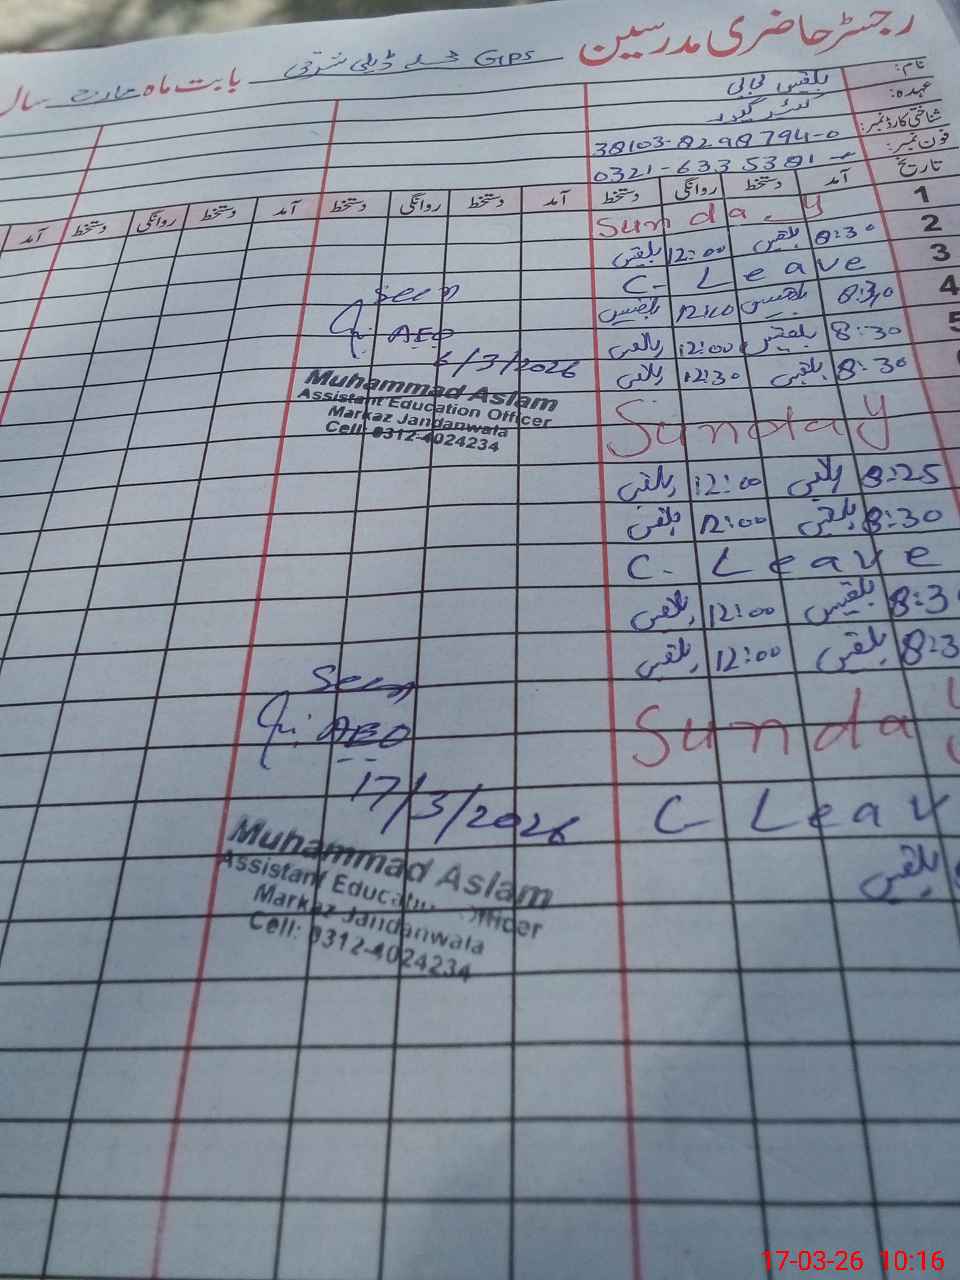 رجسٹر حاضری مدرسین GPS محلہ ڈیلی شرقی بابت ماہ مارچ سال
نام: بلقیس بی بی
عہدہ:
شناختی کارڈ نمبر: 38103-8298794-0
فون نمبر: 0321-6335381
تاریخ آمد دستخط روانگی دستخط آمد دستخط روانگی دستخط آمد دستخط روانگی دستخط آمد
1 Sunday
2 8:30 بلقیس 12:00 بلقیس
3 C- Leave
4 8:30 بلقیس 12:00 بلقیس
5 8:30 بلقیس 12:00 بلقیس
8:30 بلقیس 12:30 بلقیس
Seen
AEO
6/3/2026
Muhammad Aslam
Assistant Education Officer
Markaz Jandanwala
Cell: 0312-4024234
Sunday
8:25 بلقیس 12:00 بلقیس
8:30 بلقیس 12:00 بلقیس
C- Leave
8:3 بلقیس 12:00 بلقیس
8:3 بلقیس 12:00 بلقیس
Seen
AEO
17/3/2026
Muhammad Aslam
Assistant Education Officer
Markaz Jandanwala
Cell: 0312-4024234
Sunday
C- Leav
بلقیس
17-03-26 10:16